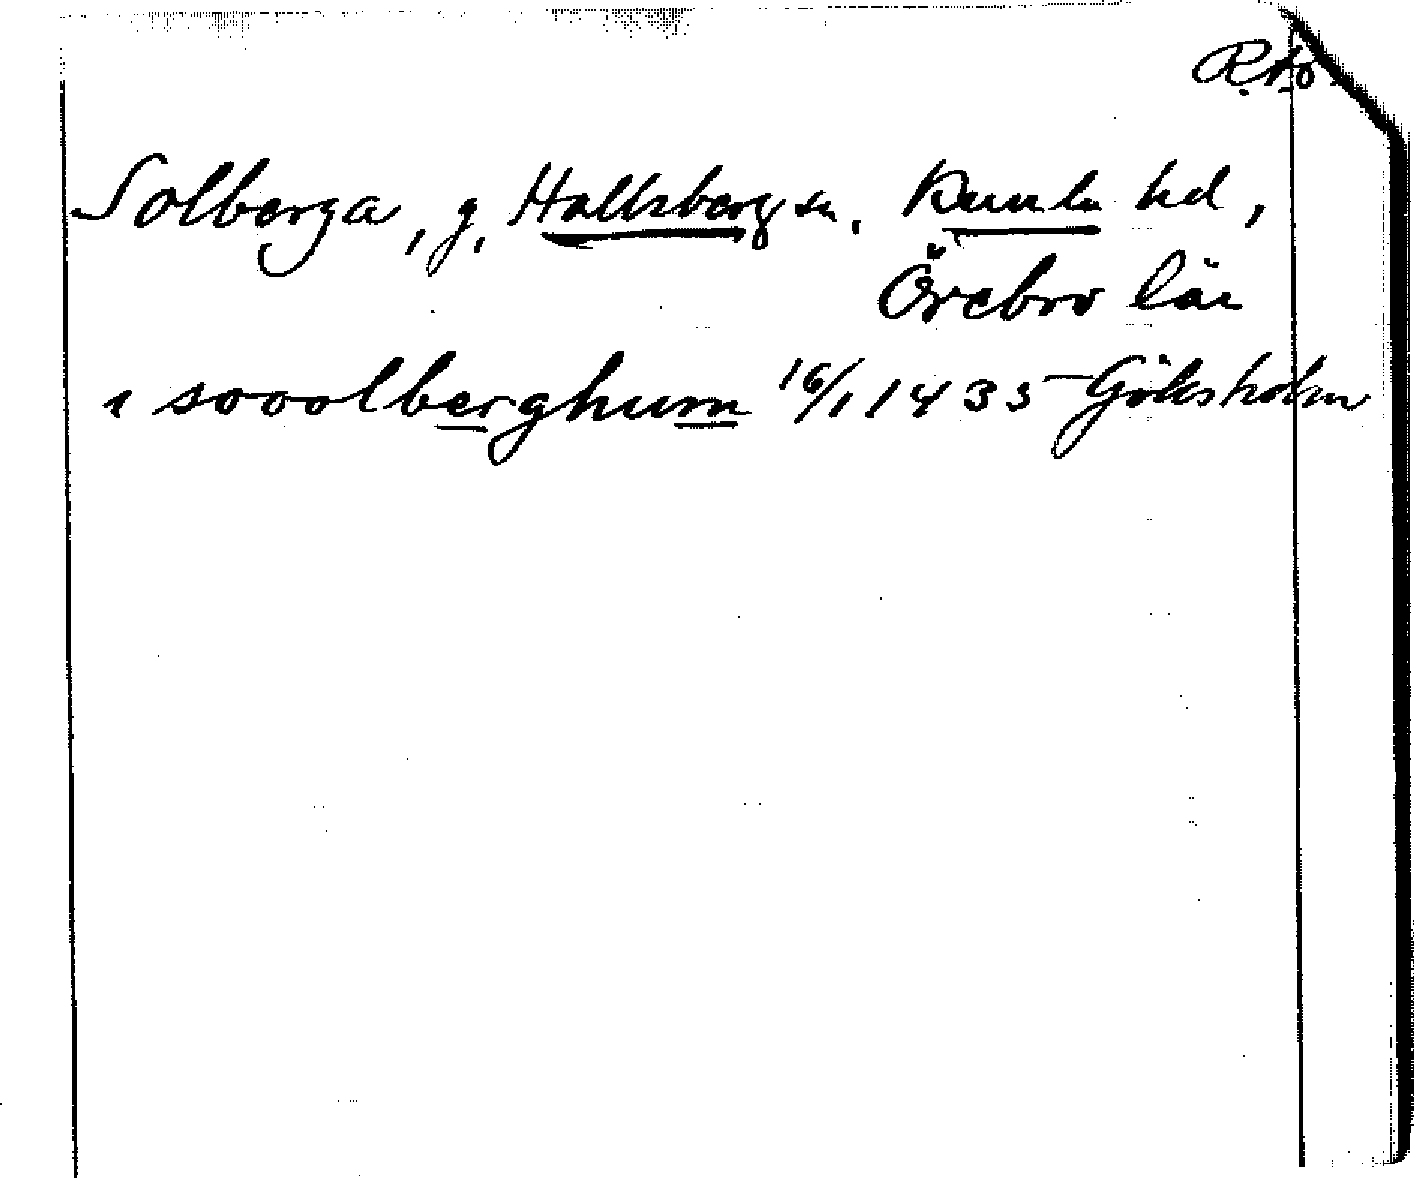 Solberga, g, Hallsberg sn, Kumla hd,
Örebro län
i sooolberghum 16/1 1435 Göksholm